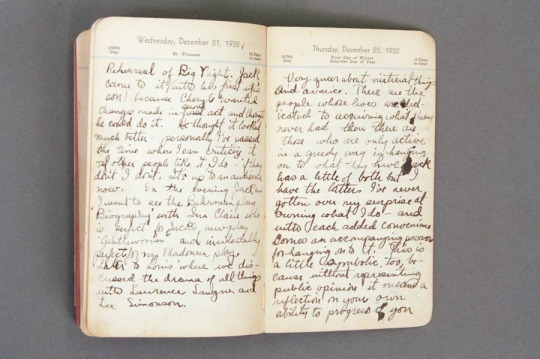 Wednesday, December 21, 1932
St. Thomas
Rehearsal of Big Night. Jack
came to it (with his first
son) because Cheryl wanted
changes made in second act and
he could do it. He thought it looked
much better – personally I've passed
the time when I can criticize it
If other people like it I do – if they
don't I don't. It's up to an audience
now. In the evening Jack and
I went to see the Behrman play
"Biography" with Ina Claire who
is perfect for Jack's new play
"Gentlewoman" and incidentally
perfect for my Madonna play.
Later to Louis where we dis-
cussed the drama of all things
with Lawrence Langner and
Lee Simonson.
Thursday, December 22, 1932
First Day of Winter
Shortest Day of Year
Very queer about material things
and avarice. There are the
people whose lives are dedi-
cated to acquiring what they
never had, then there are
those who are only active
in a greedy way in hanging
on to what they have. Jack
has a little of both but I
have the latter. I've never
gotten over my surprise at
owning what I do – and
with each added convenience
comes an accompanying
for hanging on to it. This is
a little symbolic, too, be-
cause without representing
public opinion it means a
reflection on your own
ability to progress if you